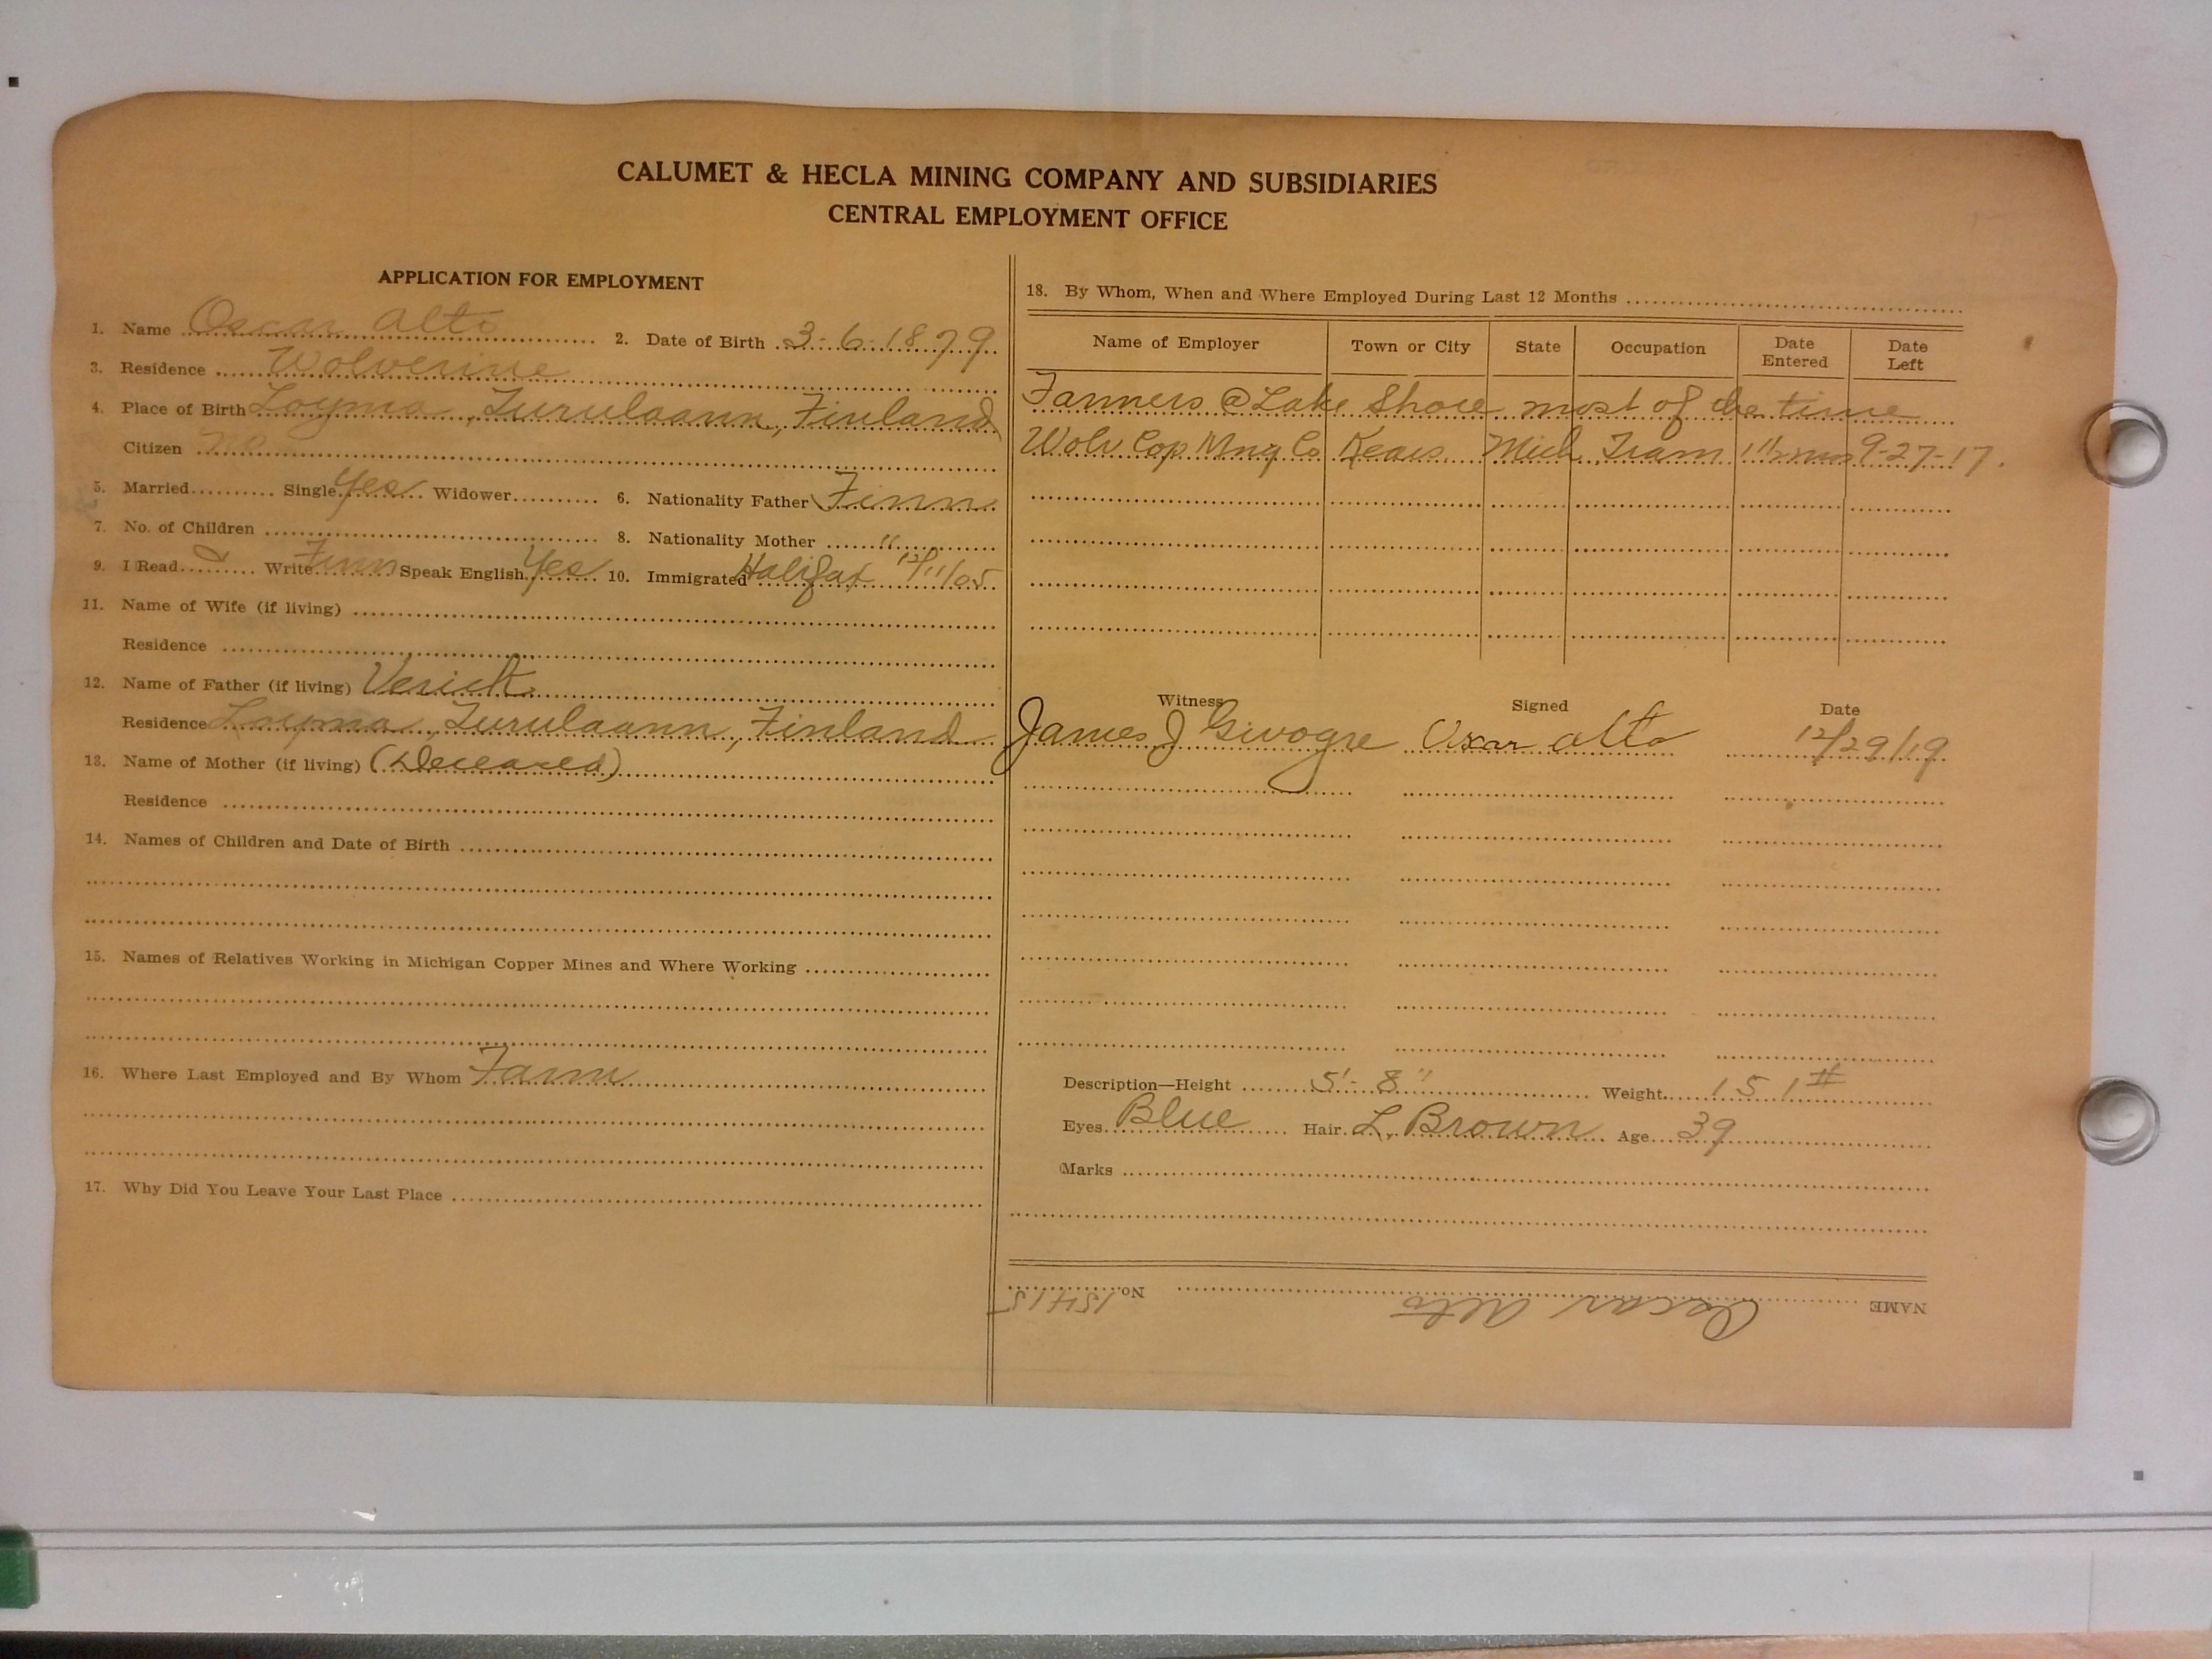 CALUMET & HECLA MINING COMPANY AND SUBSIDIARIES
CENTRAL EMPLOYMENT OFFICE
APPLICATION FOR EMPLOYMENT
1. Name Oscar Alto 2. Date of Birth 3-6-1879
3. Residence Wolverine
4. Place of Birth Loyma, Turulaann, Finland
Citizen no
5. Married Single Yes Widower 6. Nationality Father Finn
7. No. of Children 8. Nationality Mother "
9. I Read & Write Finn Speak English Yes 10. Immigrated Halifax 12/11/05
11. Name of Wife (if living)
Residence
12. Name of Father (if living)
Residence Loyma, Turulaann, Finland
13. Name of Mother (if living) (Deceased)
Residence
14. Names of Children and Date of Birth
15. Names of Relatives Working in Michigan Copper Mines and Where Working
16. Where Last Employed and By Whom Farm
17. Why Did You Leave Your Last Place
18. By Whom, When and Where Employed During Last 12 Months
Name of Employer Town or City State Occupation Date Entered Date Left
Farmers @ Lake Shore most of the time
Wolv Cop Mng Co Kears. Mich Tram 1 1/2 mos 9-27-17.
Witness Signed Date
James J Givogre Oscar Alto 12/29/19
Description—Height 5'-8" Weight 151#
Eyes Blue Hair L. Brown Age 39
Marks
NAME Oscar Alto No. 15415